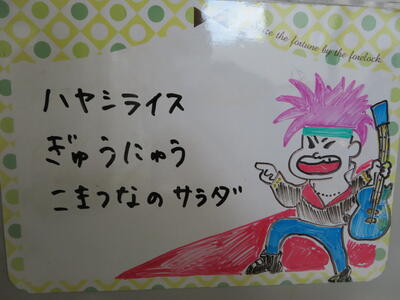 ze the fortune by the forelock
ハヤシライス
ぎゅうにゅう
こまつなのサラダ